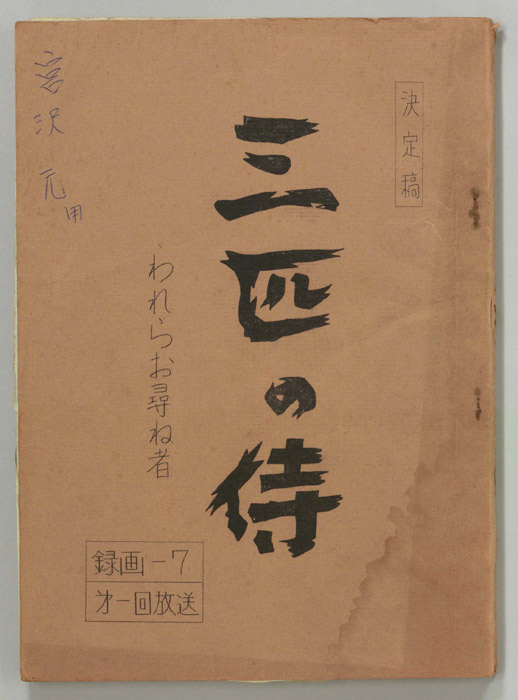 決定稿
三匹の侍
われらお尋ね者
宮沢 元
用
録画-7
才一回放送